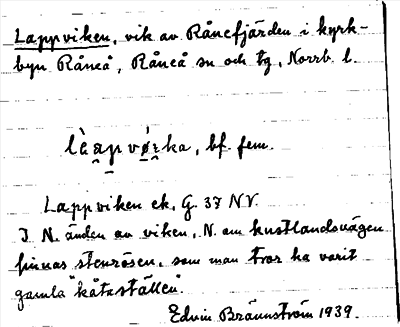 Lappviken, vik av Rånefjärden i kyrk-
byn Råneå, Råneå sn och tg, Norrb. l.
lèa̯p vǿrka, bf. fem.
Lappviken ek. G. 37 NV.
I N. änden av viken, N. om kustlandsvägen
finnas stenrösen, som man tror ha varit
gamla "kåtaställen".
Edvin Brännström 1939.